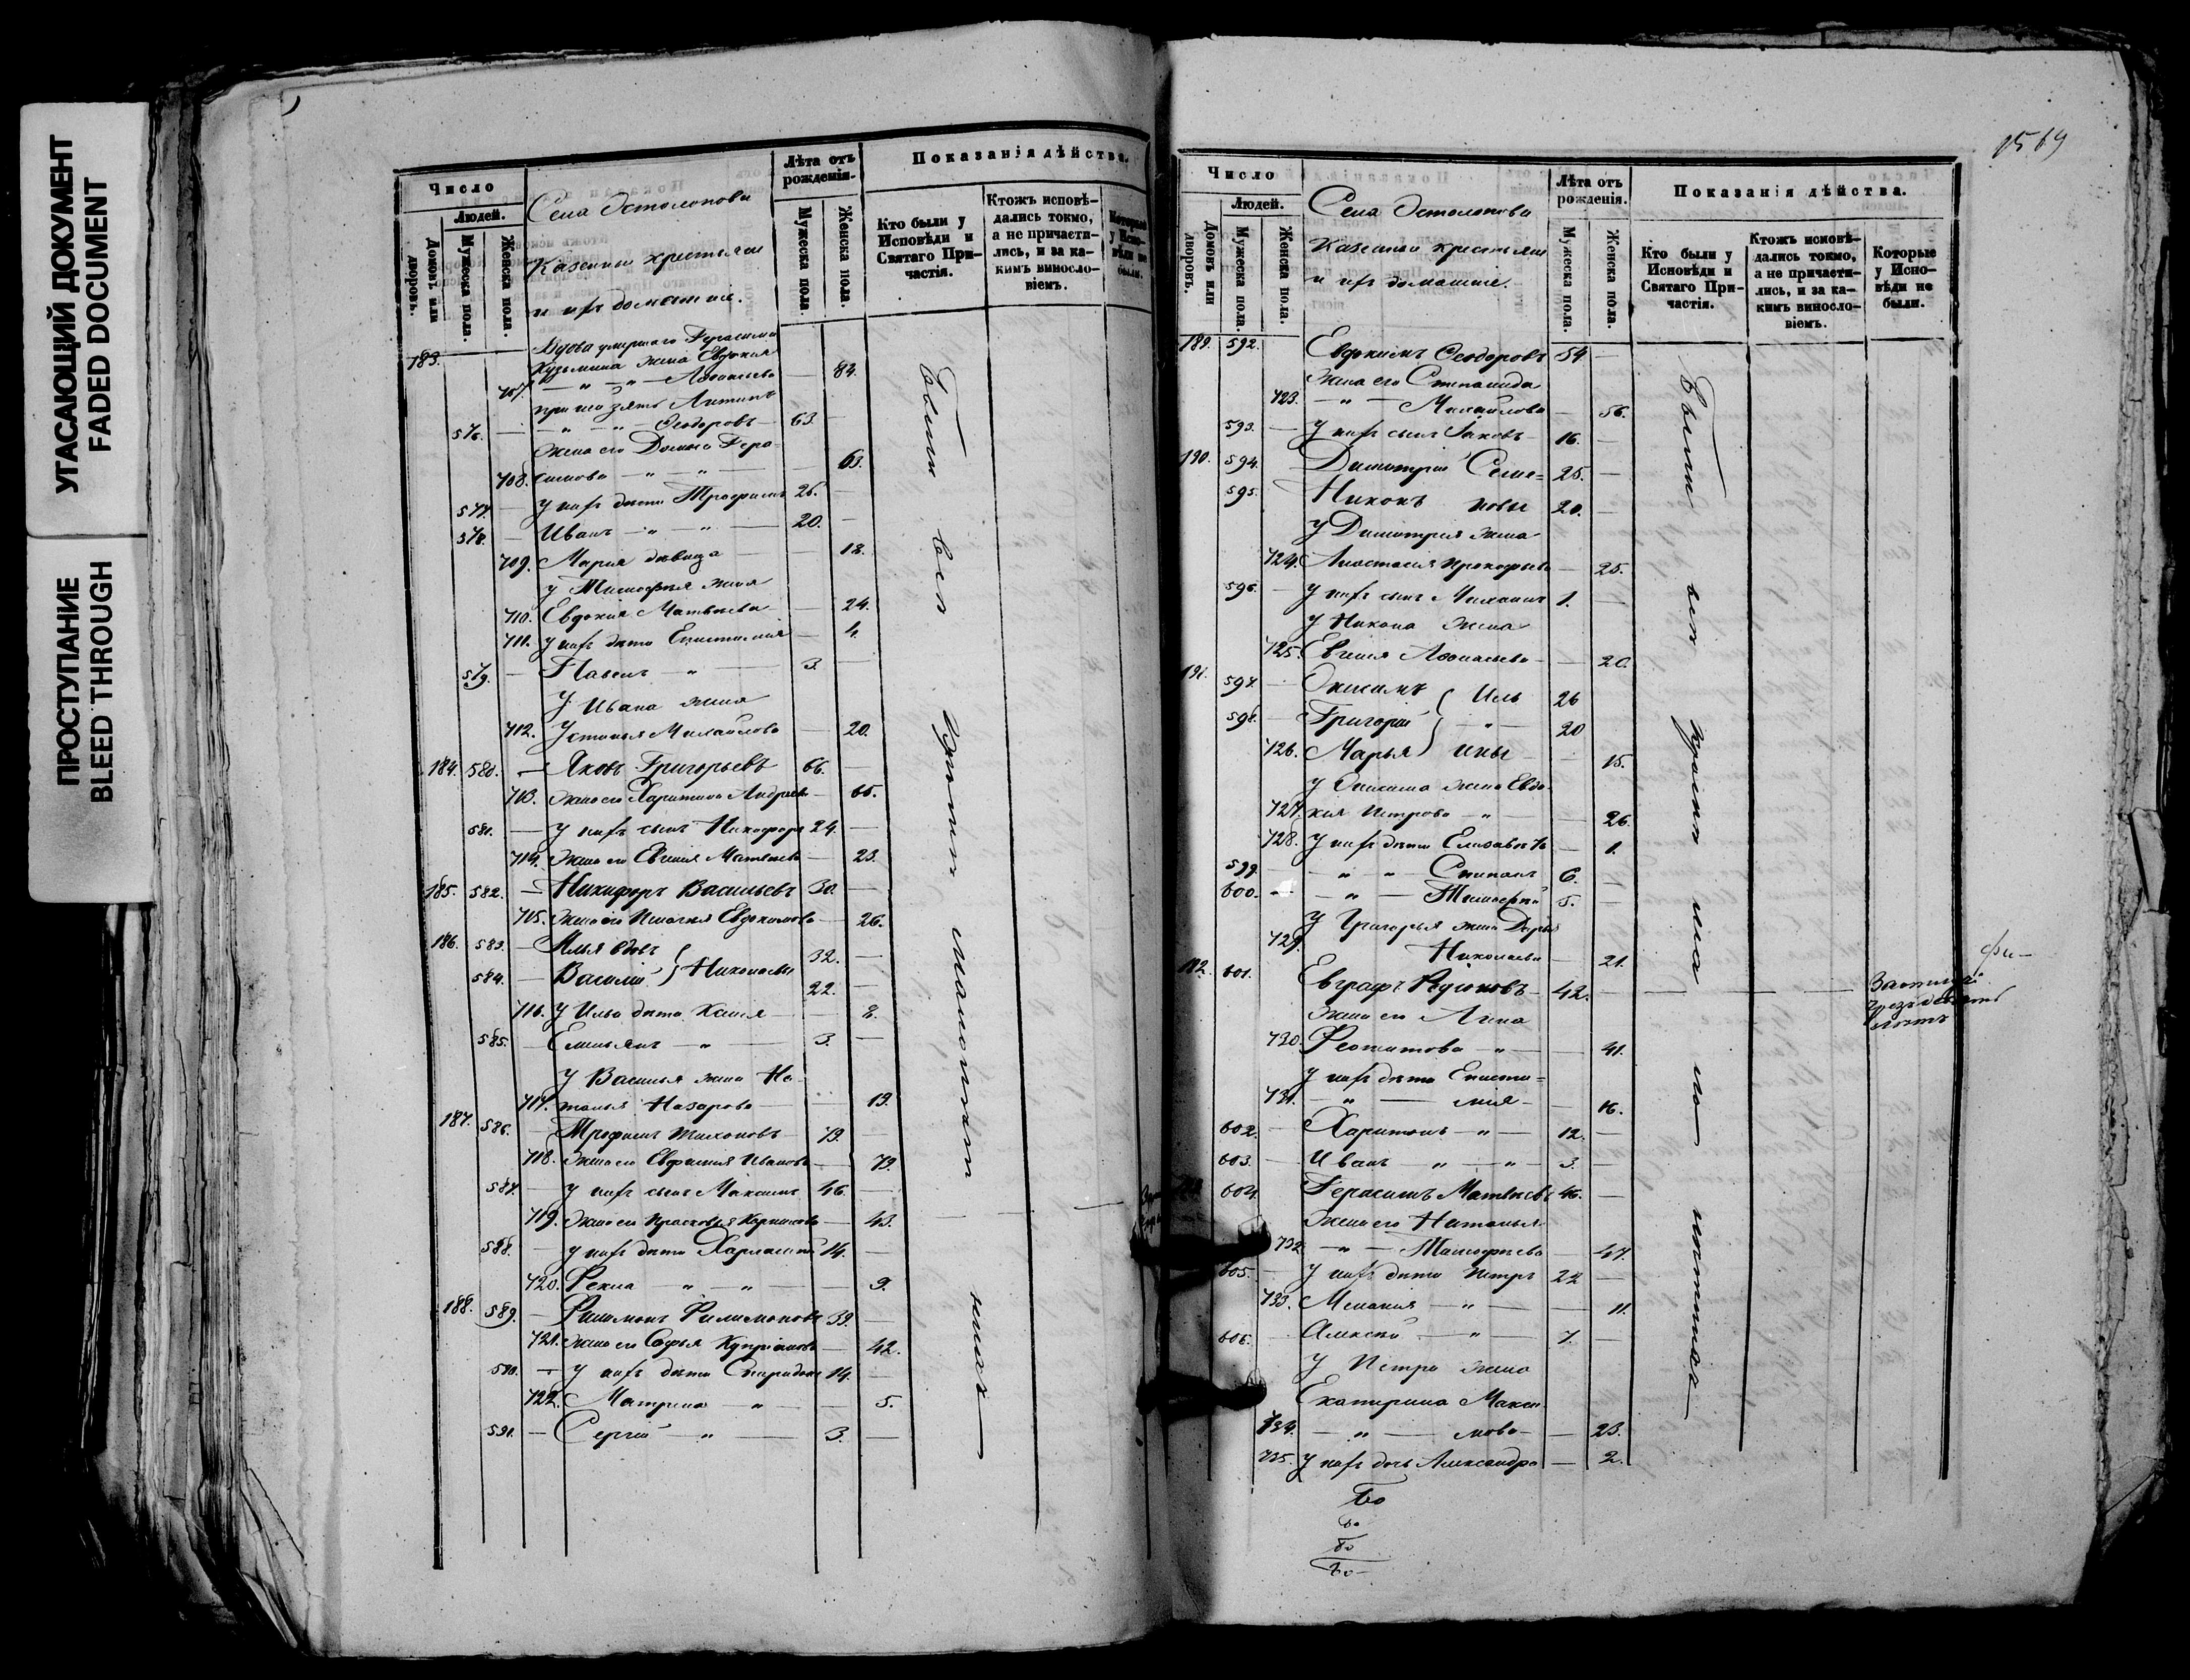 УГАСАЮЩИЙ ДОКУМЕНТ
FADED DOCUMENT
ПРОСТУПАНИЕ
BLEED THROUGH
Число
Людей.
Домовъ или дворовъ.
Мужеска пола.
Женска пола.
Села Эстолопова
Казенные крестьяне
и ихъ домашніе.
Лѣта отъ рожденія.
Мужеска пола.
Женска пола.
Показанія дѣйства.
Кто были у Исповѣди и Святаго Причастія.
Ктожъ исповѣдались токмо, а не причастились, и за какимъ винословіемъ.
Которые у Исповѣди не были.
183. Вдова умершаго Герасима
Кузьмина жена Евдокия
707. — „ — „ — Аѳонасьева — 84.
576. — „ — „ — Ѳеодоровъ — 63. —
жена его Домна Гера-
708. симова — „ — „ — 63.
577. — у нихъ дѣти 26. —
578. — Иванъ — „ — „ — 20. —
709. Марія дѣвица — 18.
у Тимофея жена
710. Евдокия Матвѣева — 24.
711. у нихъ дѣти Епистимия — 4.
579. — Павелъ — „ — 3. —
У Ивана жена
712. Устинья Михайлова — 20.
184. 580. — Яковъ Григорьевъ 66. —
713. жена его Харитина Андреева — 65.
581. — у нихъ сынъ Никифоръ 24. —
714. жена его Евгения Матвѣева — 23.
185. 582. — Никифоръ Васильевъ 30. —
715. жена его Пелагея Евдокимова — 26.
186. 583. — Илья вдовъ 32. —
584. — Василій } Николаевы 22. —
716. у Ильи дѣти Ксения — 8.
585. — Емельянъ — „ — 3. —
у Василья жена На-
717. талья Назарова — 19.
187. 586. — Трофимъ Тихоновъ — 79. —
718. жена его Евфимия Иванова — 79.
587. — у нихъ сынъ Максимъ 46. —
719. жена его Прасковья — 43.
588. — у нихъ дѣти Харлампій 14. —
720. Фекла „ — „ — 9.
188. 589. — Филимонъ Филимоновъ 39. —
721. жена его Софья Купріянова — 42.
590. — у нихъ дѣти Спиридонъ 14. —
722. Матрена — „ — 5.
591. — Сергій — „ — 3. —
Были вси
1569
Число
Людей.
Домовъ или дворовъ.
Мужеска пола.
Женска пола.
Села Эстолопова
Казенные крестьяне
и ихъ домашніе.
Лѣта отъ рожденія.
Мужеска пола.
Женска пола.
Показанія дѣйства.
Кто были у Исповѣди и Святаго Причастія.
Ктожъ исповѣдались токмо, а не причастились, и за какимъ винословіемъ.
Которые у Исповѣди не были.
189. 592. Евдокимъ Ѳеодоровъ 54 —
жена его Степанида
723. — „ — Михайлова — 56.
593. — у нихъ сынъ Іаковъ — 16. —
190. 594. Димитрій Семе= 25. —
595. Никонъ новы 20. —
У Димитрия жена
724. Анастасія Прокофьева — 25.
596. — у нихъ сынъ Михаилъ 1. —
у Никона жена
725. Евгения Аѳонасьева — 20.
191. 597. — Онисимъ { Иль 26
598. — Григорій } — „ — 20
726. Марья } ины — 15.
у Онисима жена Евдо-
727. кия Петрова — „ — 26.
728. у нихъ дѣти Елизавета — 1.
599. — „ — „ — Степанъ 6. —
600. — „ — Тимофей 5. —
У Григорья жена Дарья
729. Николаева — 21.
192. 601. Евграфъ Родіоновъ — 42. —
жена его Анна
730. Феоктистова — „ — 41.
у нихъ дѣти Еписти=
731. — „ — мия — 16.
602. — Харитонъ — „ — 12. —
603. — Иванъ — „ — „ — 3. —
604. Герасимъ Матвѣевъ 46. —
жена его Наталья
732. — „ — Тимофеева — 47.
605. — у нихъ дѣти Петръ 22 —
733. Мелания — „ — 11.
606. — Алексѣй — „ — 7. —
У Петра жена
Екатерина Макси-
734. — „ — мова — 23.
735. у нихъ дочь Александра — 2.
Были вси